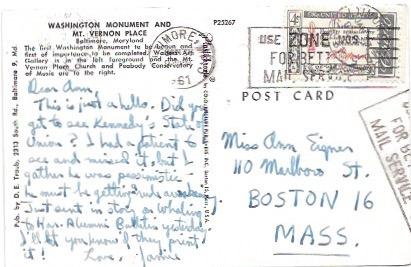 WASHINGTON MONUMENT AND
MT. VERNON PLACE
Baltimore, Maryland
The first Washington Monument to be begun and
first of importance to be completed. Walters Art
Gallery is in the left foreground and the Mt.
Vernon Place Church and Peabody Conservatory
of Music are to the right.
P25267
Dear Ann,
This is just a hello. Did you
get to see Kennedy's State
Union? I had a patient to
see and missed it, but I
gather he was pessimistic
he must be getting
Just sent in story on Whaling
to Har. Alumni Bulletin yesterday
I'll let you know if they print
it! Love, Jamie
Pub. by D. E. Traub, 2313 South Rd., Baltimore 9, Md.
61
USE ZONE NOS.
FOR BETTER
MAIL SERVICE
4¢
POST CARD
Miss Ann Eigner
110 Marlboro St.
BOSTON 16
MASS.
FOR
MAIL SERVICE